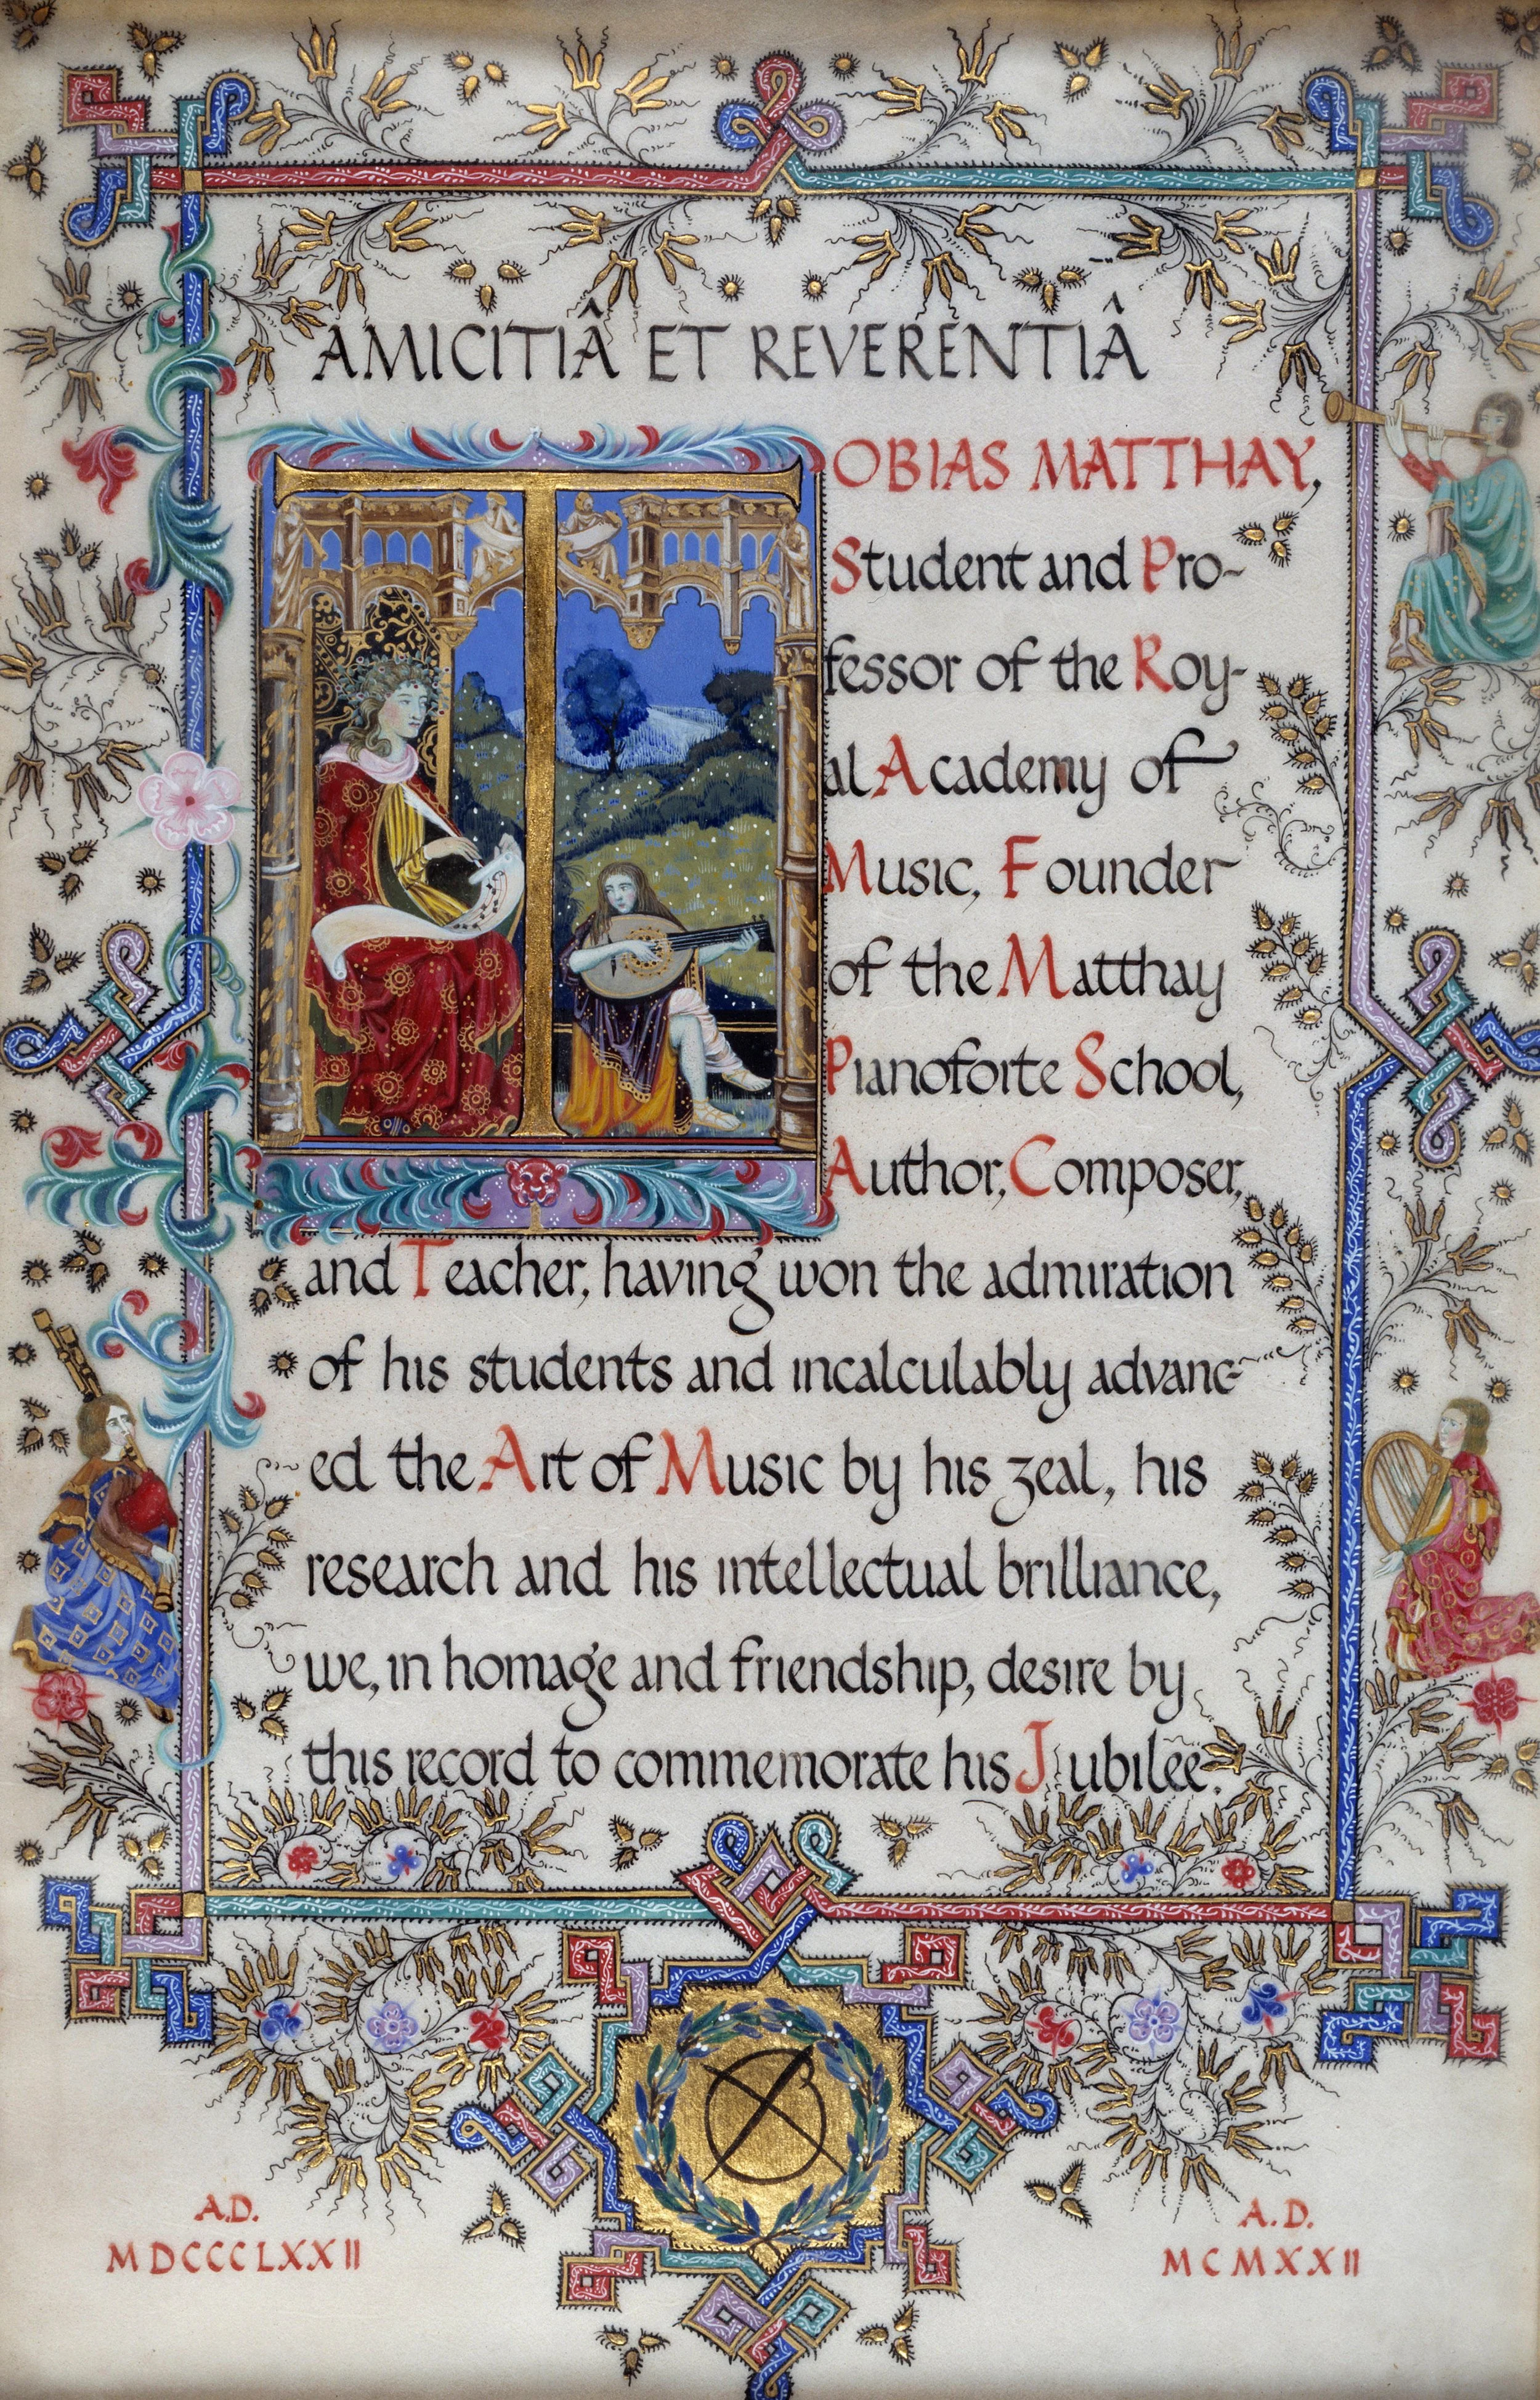 AMICITIÂ ET REVERENTIÂ
TOBIAS MATTHAY,
Student and Pro-
fessor of the Roy-
al Academy of
Music, Founder
of the Matthay
Pianoforte School,
Author, Composer,
and Teacher, having won the admiration
of his students and incalculably advanc-
ed the Art of Music by his zeal, his
research and his intellectual brilliance,
we, in homage and friendship, desire by
this record to commemorate his Jubilee.
A.D.
MDCCCLXXII
A.D.
MCMXXII